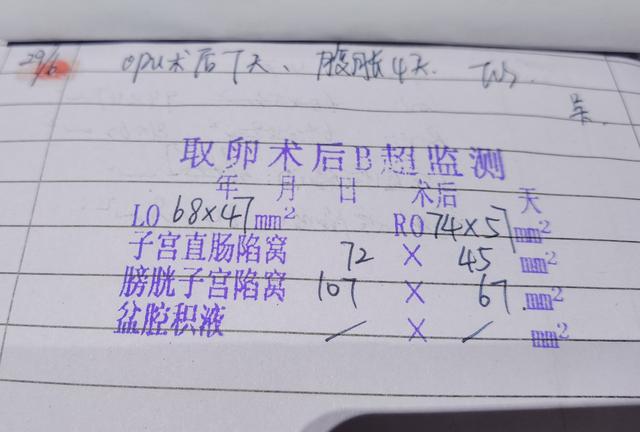 29/6 OPU术后7天、腹胀4天.
取卵术后B超监测
年 月 日 术后 天
LO 68×47mm² RO 74×57mm²
子宫直肠陷窝 72 × 45 mm²
膀胱子宫陷窝 107 × 67 mm²
盆腔积液 / × / mm²